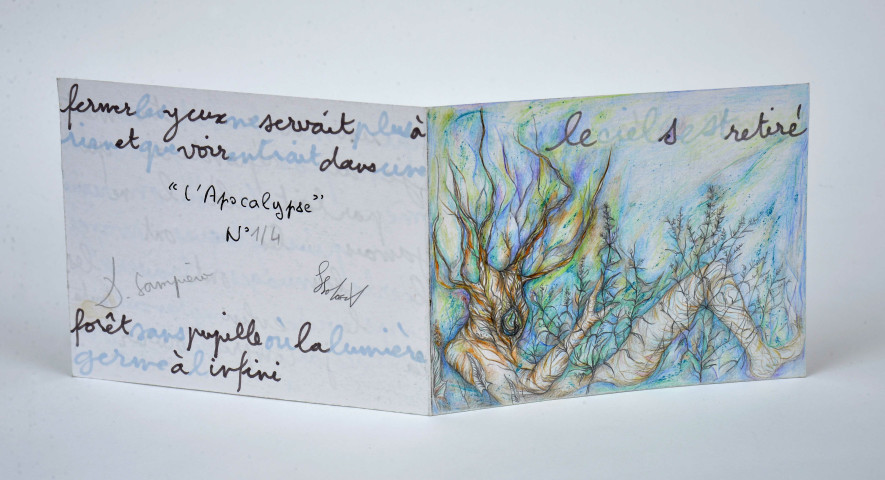 fermer les yeux ne servait plus à
rien et que voir entrait dans
“L'Apocalypse”
N°1/4
D. Sampiero
forêt sans pupille où la lumière
germe à l infini
le ciel s est retiré